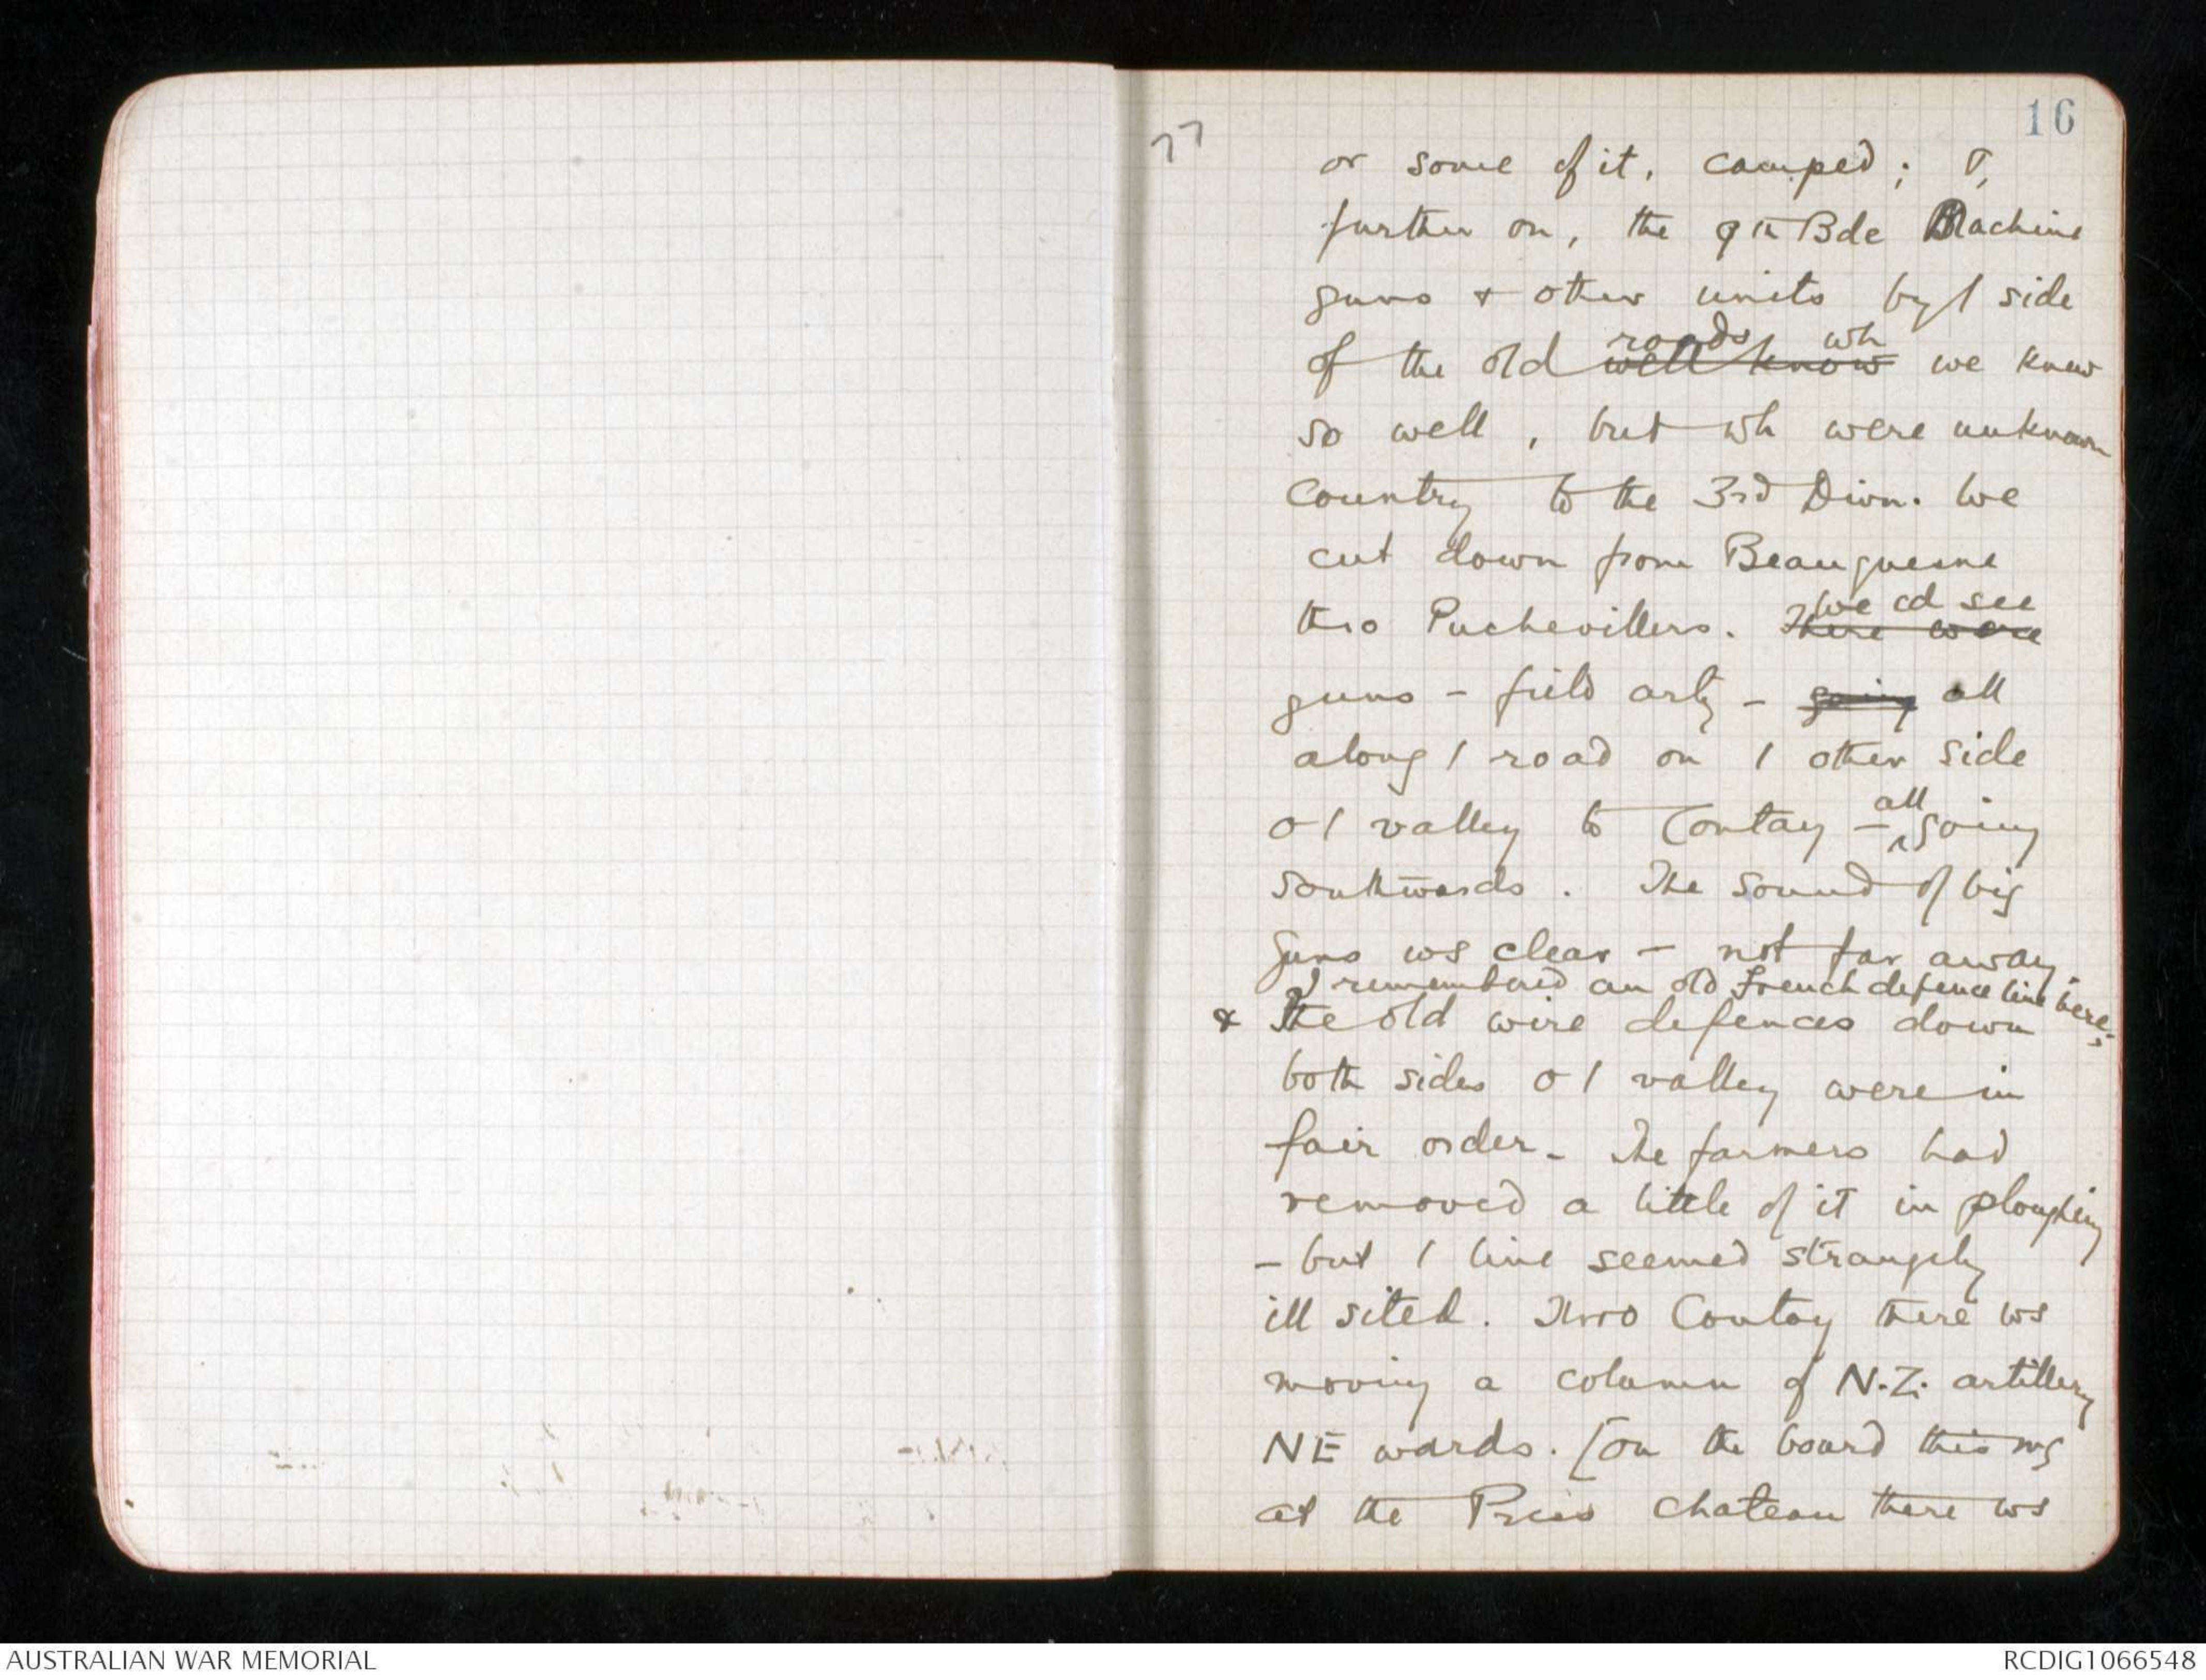 16
77
or some of it, camped; &,
further on, the 9th Bde Machine
guns & other units by / side
of the old well know roads wh we knew
so well, but wh were unknown
country to the 3rd Divn. We
cut down from Beauquesne
thro Puchevillers. There were We cd see
guns - field arty - going all
along / road on / other side
o / valley to Contay - all going
southwards. The sound of big
guns ws clear - not far away.
I remembered an old French defence line here;
& The old wire defences down
both sides o / valley were in
fair order. The farmers had
removed a little of it in ploughing
- but / line seemed strangely
ill sited. Thro Contay there ws
moving a column of N.Z. artillery
NE wards. [On the board this mg
at the Press Chateau there ws
AUSTRALIAN WAR MEMORIAL
RCDIG1066548